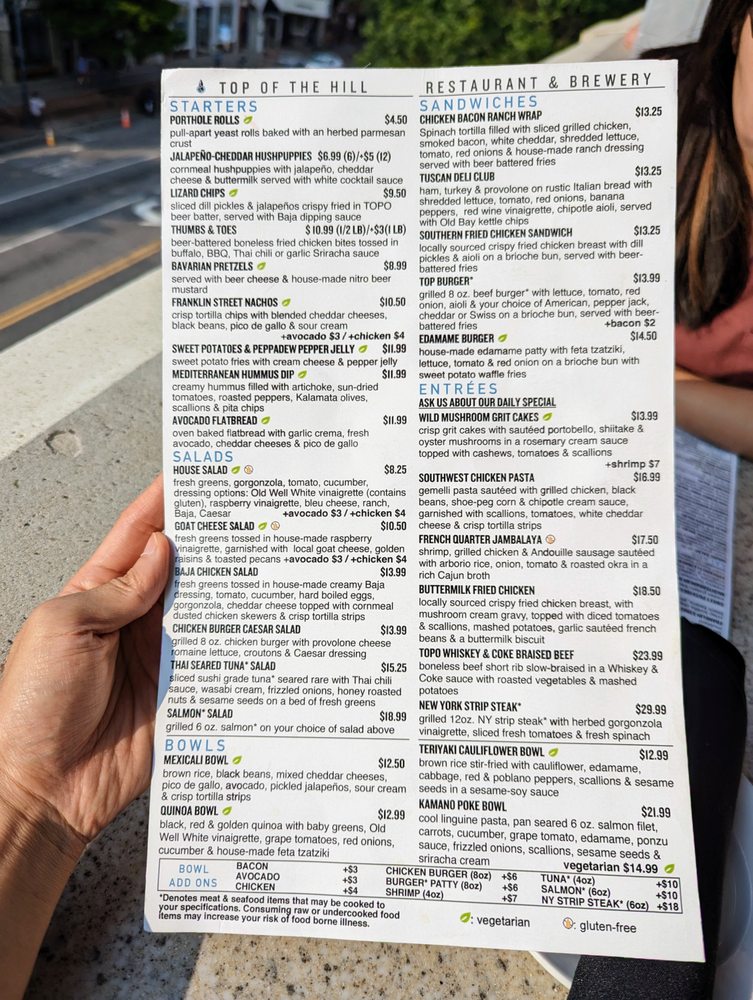 TOP OF THE HILL
RESTAURANT & BREWERY
STARTERS
PORTHOLE ROLLS $4.50
pull-apart yeast rolls baked with an herbed parmesan
crust
JALAPEÑO-CHEDDAR HUSHPUPPIES $6.99 (6)/+$5 (12)
cornmeal hushpuppies with jalapeño, cheddar
cheese & buttermilk served with white cocktail sauce
LIZARD CHIPS $9.50
sliced dill pickles & jalapeños crispy fried in TOPO
beer batter, served with Baja dipping sauce
THUMBS & TOES $10.99 (1/2 LB)/+$3(1 LB)
beer-battered boneless fried chicken bites tossed in
buffalo, BBQ, Thai chili or garlic Sriracha sauce
BAVARIAN PRETZELS $8.99
served with beer cheese & house-made nitro beer
mustard
FRANKLIN STREET NACHOS $10.50
crisp tortilla chips with blended cheddar cheeses,
black beans, pico de gallo & sour cream
+avocado $3 / +chicken $4
SWEET POTATOES & PEPPADEW PEPPER JELLY $11.99
sweet potato fries with cream cheese & pepper jelly
MEDITERRANEAN HUMMUS DIP $11.99
creamy hummus filled with artichoke, sun-dried
tomatoes, roasted peppers, Kalamata olives,
scallions & pita chips
AVOCADO FLATBREAD $11.99
oven baked flatbread with garlic crema, fresh
avocado, cheddar cheeses & pico de gallo
SALADS
HOUSE SALAD $8.25
fresh greens, gorgonzola, tomato, cucumber,
dressing options: Old Well White vinaigrette (contains
gluten), raspberry vinaigrette, bleu cheese, ranch,
Baja, Caesar +avocado $3 / +chicken $4
GOAT CHEESE SALAD $10.50
fresh greens tossed in house-made raspberry
vinaigrette, garnished with local goat cheese, golden
raisins & toasted pecans +avocado $3 / +chicken $4
BAJA CHICKEN SALAD $13.99
fresh greens tossed in house-made creamy Baja
dressing, tomato, cucumber, hard boiled eggs,
gorgonzola, cheddar cheese topped with cornmeal
dusted chicken skewers & crisp tortilla strips
CHICKEN BURGER CAESAR SALAD $13.99
grilled 8 oz. chicken burger with provolone cheese
romaine lettuce, croutons & Caesar dressing
THAI SEARED TUNA* SALAD $15.25
sliced sushi grade tuna* seared rare with Thai chili
sauce, wasabi cream, frizzled onions, honey roasted
nuts & sesame seeds on a bed of fresh greens
SALMON* SALAD $18.99
grilled 6 oz. salmon* on your choice of salad above
BOWLS
MEXICALI BOWL $12.50
brown rice, black beans, mixed cheddar cheeses,
pico de gallo, avocado, pickled jalapeños, sour cream
& crisp tortilla strips
QUINOA BOWL $12.99
black, red & golden quinoa with baby greens, Old
Well White vinaigrette, grape tomatoes, red onions,
cucumber & house-made feta tzatziki
SANDWICHES
CHICKEN BACON RANCH WRAP $13.25
Spinach tortilla filled with sliced grilled chicken,
smoked bacon, white cheddar, shredded lettuce,
tomato, red onions & house-made ranch dressing
served with beer battered fries
TUSCAN DELI CLUB $13.25
ham, turkey & provolone on rustic Italian bread with
shredded lettuce, tomato, red onions, banana
peppers, red wine vinaigrette, chipotle aioli, served
with Old Bay kettle chips
SOUTHERN FRIED CHICKEN SANDWICH $13.25
locally sourced crispy fried chicken breast with dill
pickles & aioli on a brioche bun, served with beer-
battered fries
TOP BURGER* $13.99
grilled 8 oz. beef burger* with lettuce, tomato, red
onion, aioli & your choice of American, pepper jack,
cheddar or Swiss on a brioche bun, served with beer-
battered fries +bacon $2
EDAMAME BURGER $14.50
house-made edamame patty with feta tzatziki,
lettuce, tomato & red onion on a brioche bun with
sweet potato waffle fries
ENTRÉES
ASK US ABOUT OUR DAILY SPECIAL
WILD MUSHROOM GRIT CAKES $13.99
crisp grit cakes with sautéed portobello, shiitake &
oyster mushrooms in a rosemary cream sauce
topped with cashews, tomatoes & scallions
+shrimp $7
SOUTHWEST CHICKEN PASTA $16.99
gemelli pasta sautéed with grilled chicken, black
beans, shoe-peg corn & chipotle cream sauce,
garnished with scallions, tomatoes, white cheddar
cheese & crisp tortilla strips
FRENCH QUARTER JAMBALAYA $17.50
shrimp, grilled chicken & Andouille sausage sautéed
with arborio rice, onion, tomato & roasted okra in a
rich Cajun broth
BUTTERMILK FRIED CHICKEN $18.50
locally sourced crispy fried chicken breast, with
mushroom cream gravy, topped with diced tomatoes
& scallions, mashed potatoes, garlic sautéed french
beans & a buttermilk biscuit
TOPO WHISKEY & COKE BRAISED BEEF $23.99
boneless beef short rib slow-braised in a Whiskey &
Coke sauce with roasted vegetables & mashed
potatoes
NEW YORK STRIP STEAK* $29.99
grilled 12oz. NY strip steak* with herbed gorgonzola
vinaigrette, sliced fresh tomatoes & fresh spinach
TERIYAKI CAULIFLOWER BOWL $12.99
brown rice stir-fried with cauliflower, edamame,
cabbage, red & poblano peppers, scallions & sesame
seeds in a sesame-soy sauce
KAMANO POKE BOWL $21.99
cool linguine pasta, pan seared 6 oz. salmon filet,
carrots, cucumber, grape tomato, edamame, ponzu
sauce, frizzled onions, scallions, sesame seeds &
sriracha cream
vegetarian $14.99
BOWL
ADD ONS
BACON +$3
AVOCADO +$3
CHICKEN +$4
CHICKEN BURGER (8oz) +$6
BURGER* PATTY (8oz) +$6
SHRIMP (4oz) +$7
TUNA* (4oz) +$10
SALMON* (6oz) +$10
NY STRIP STEAK* (6oz) +$18
*Denotes meat & seafood items that may be cooked to
your specifications. Consuming raw or undercooked food
items may increase your risk of food borne illness.
: vegetarian
: gluten-free